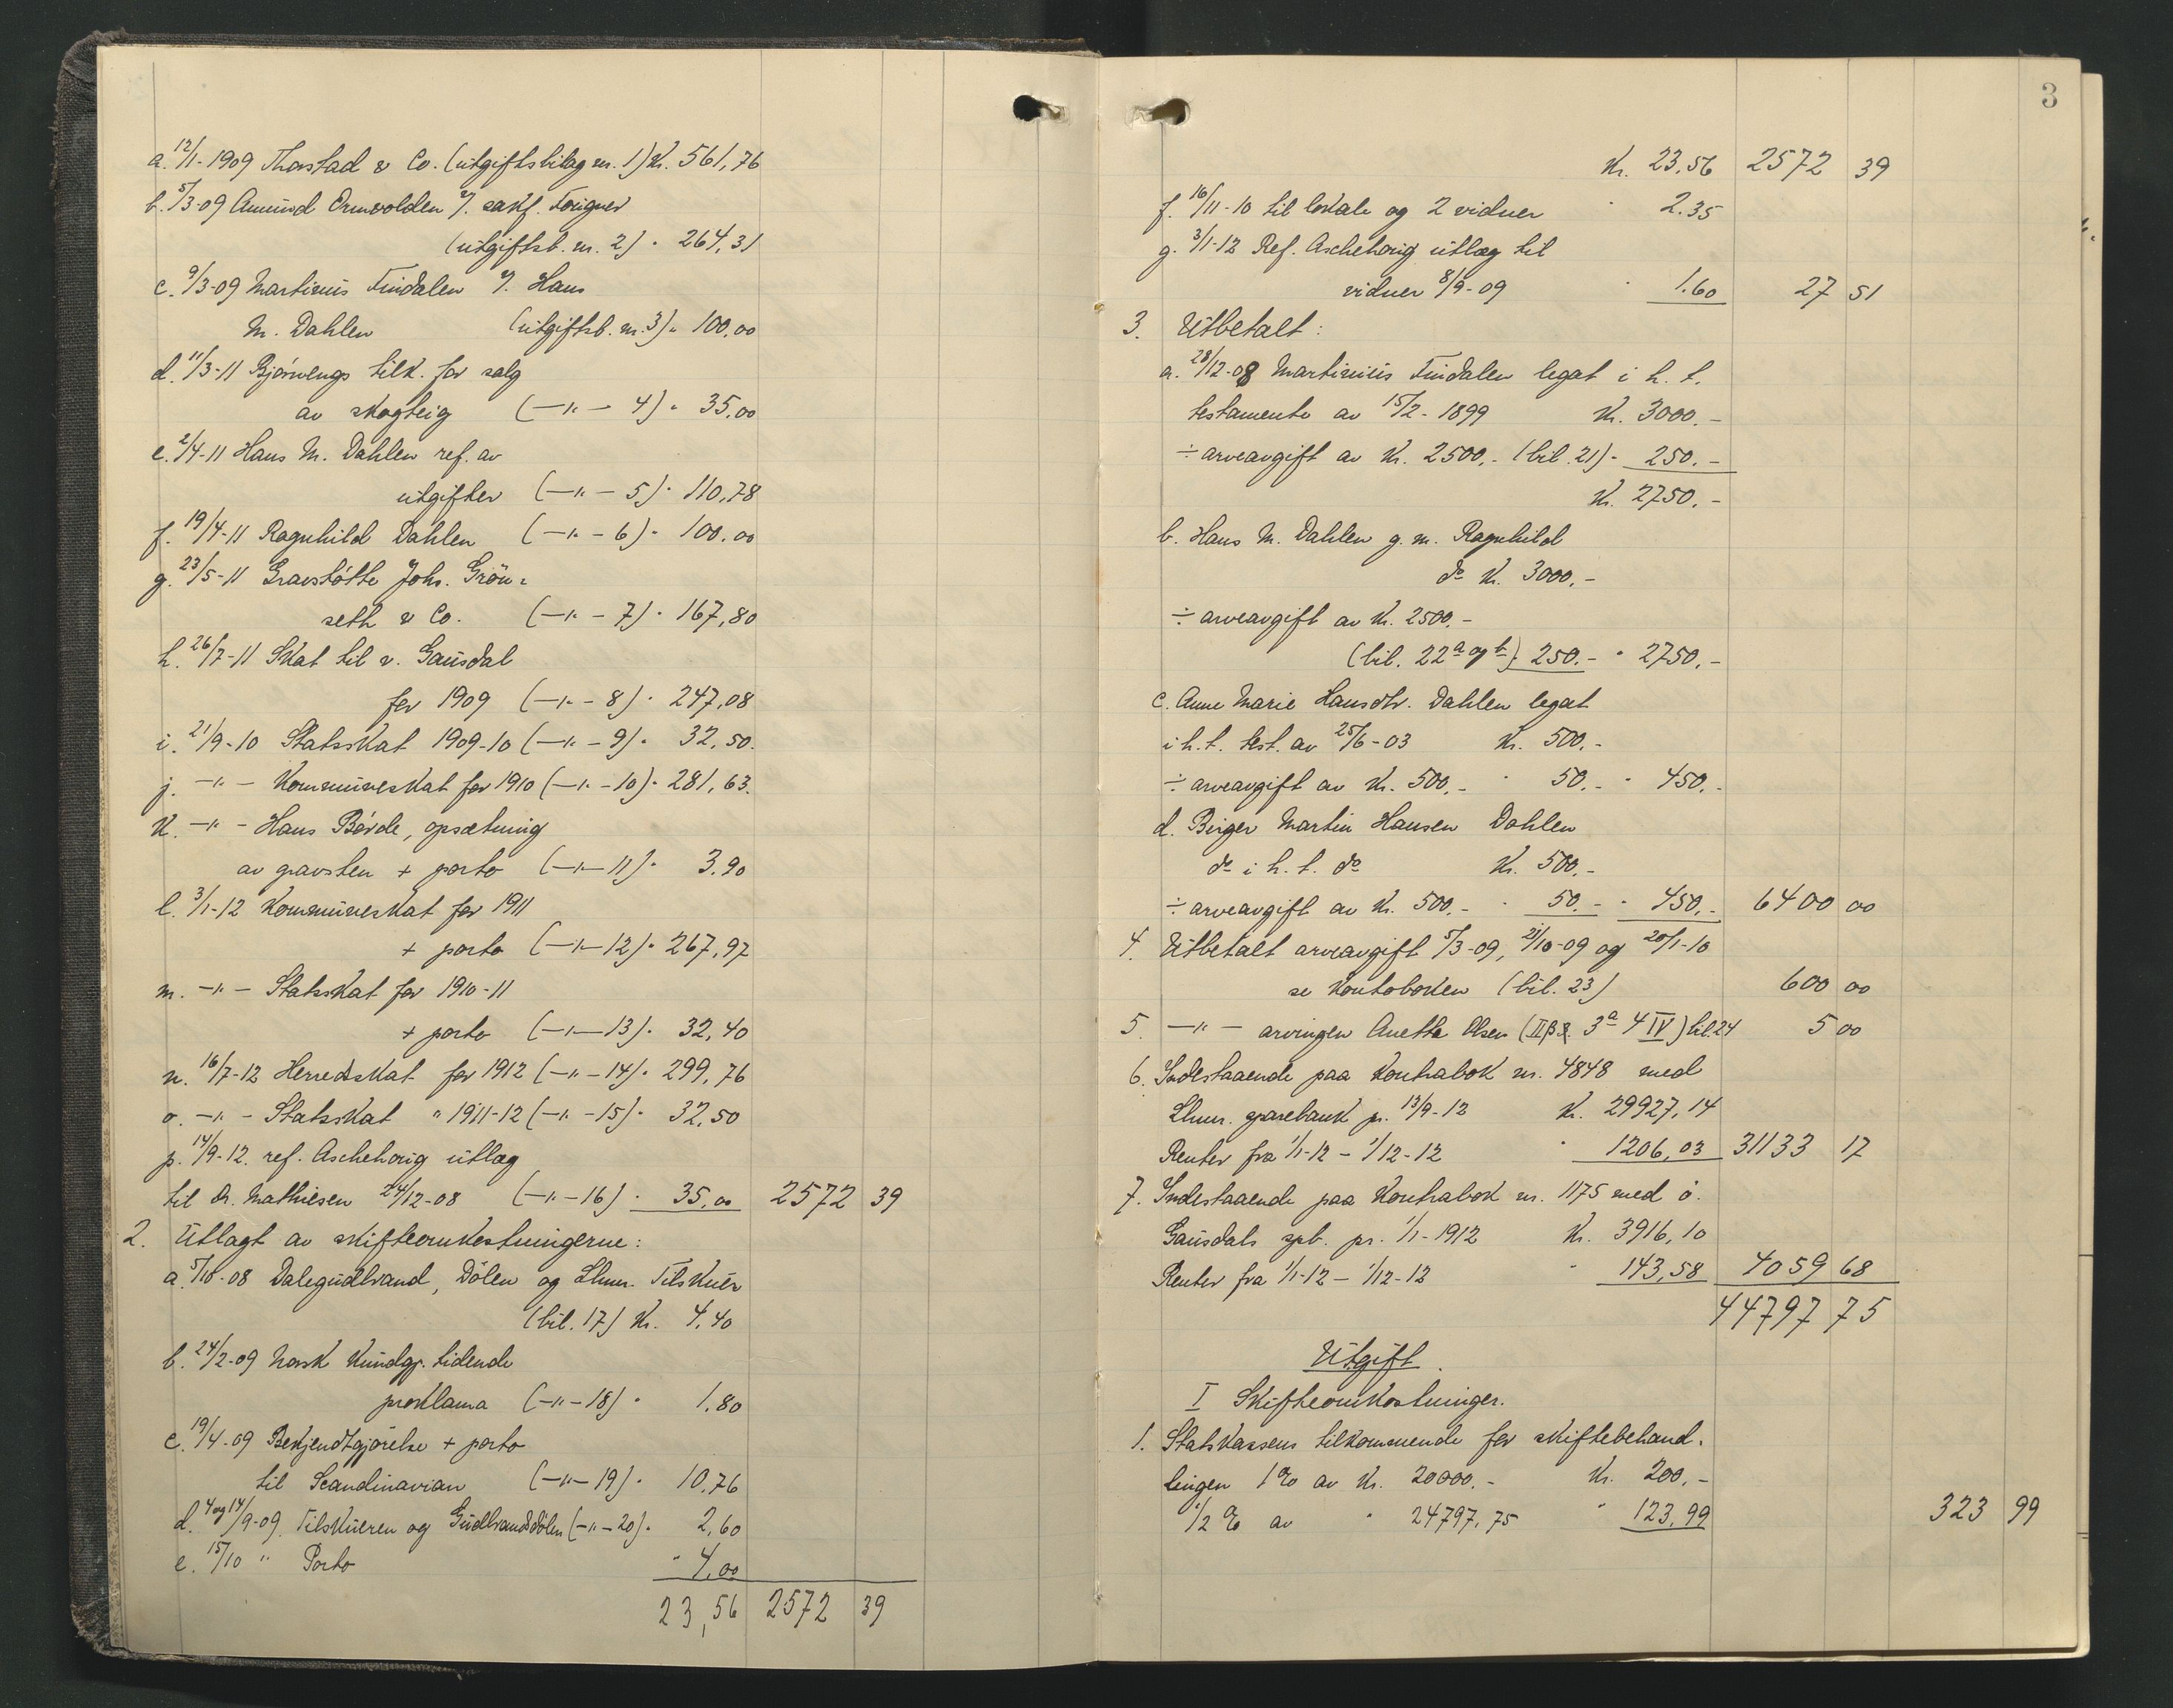 a. 12/1-1909 Thorstad & Co. (utgiftsbilag nr. 1) Kr. 561,76
b. 5/3-09 Amund Ormvolden v/. sakf. Fougner
(utgiftsb. nr. 2) " 264,31
c. 9/3-09 Martinius Findalen v/. Hans
M. Dahlen (utgiftsb. nr. 3) " 100,00
d. 11/3-11 Bjørnengs tilk. for salg
av skogteig (—"— 4) " 35,00
e. 2/4-11 Hans M. Dahlen ref. av
utgifter (—"— 5) " 110,78
f. 19/4-11 Ragnhild Dahlen (—"— 6) " 100,00
g. 23/5-11 Gravstøtte Johs. Grøn=
seth & Co. (—"— 7) " 167,80
h. 26/7-11 Skat til v. Gausdal
for 1909 (—"— 8) " 247,08
i. 21/9-10 Statsskat 1909-10 (—"— 9) " 32,50
j. —"— Kommuneskat for 1910 (—"— 10) " 281,63
k. —"— Hans Børde, opsætning
av gravsten + porto (—"— 11) " 3,90
l. 3/1-12 Kommuneskat for 1911
+ porto (—"— 12) " 267,97
m. —"— Statsskat for 1910-11
+ porto (—"— 13) " 32,40
n. 16/7-12 Herredskat for 1912 (—"— 14) " 299,76
o. —"— Statsskat " 1911-12 (—"— 15) " 32,50
p. 14/9-12. ref. Aschehoug utlæg
til dr. Mathiesen 24/12-08 (—"— 16) " 35,00 2572 39
2. Utlagt av skifteomkostningerne:
a. 5/10-08 Dalegudbrand, Dølen og Lhmr. Tilskuer
(bil. 17) Kr. 4,40
b. 24/2-09 Norsk Kundgj. tidende
proklama (—"— 18) " 1,80
c. 19/4-09 Bekjendtgjørelse + porto
til Scandinavian (—"— 19) " 10,76
d. 4 og 14/9-09. Tilskueren og Gudbrandsdølen (—"— 20) " 2,60
e. 15/10 " Porto " 4,00
23,56 2572 39
3
Kr. 23,56 2572 39
f. 16/11-10 til lokale og 2 vidner " 2.35
g. 3/1-12 Ref. Aschehoug utlæg til
vidner 8/9-09 " 1.60 27 51
3. Utbetalt:
a. 28/12-08 Martinius Findalen legat i h. t.
testamente av 15/2-1899 Kr. 3000.-
÷ arveavgift av Kr. 2500.- (bil. 21) " 250.-
Kr. 2750.-
b. Hans M. Dahlen g. m. Ragnhild
do Kr. 3000.-
÷ arveavgift av Kr. 2500.-
(bil. 22a og b) " 250.- " 2750.-
c. Anne Marie Hansdtr. Dahlen legat
i h. t. test. av 25/6-03 Kr. 500.-
÷ arveavgift av Kr. 500.- " 50.- " 450.-
d. Birger Martin Hansen Dahlen
do i h. t. do Kr. 500.-
÷ arveavgift av Kr. 500.- " 50.- " 450.- 6400 00
4. Utbetalt arveavgift 5/3-09, 21/10-09 og 20/1-10
se kontoboken (bil. 23) 600 00
5. —"— arvingen Anetha Olsen 3a 4 IV) bil. 24 5 00
6. Indestaaende paa Kontrabok nr. 4848 med
Lhmr. sparebank pr. 13/9-12 Kr. 29927,14
Renter fra 1/1-12 - 1/12-12 " 1206,03 31133 17
7. Indestaaende paa Kontrabok nr. 1175 med ø.
Gausdals spb. pr. 1/1-1912 Kr. 3916,10
Renter fra 1/1-12 - 1/12-12 " 143,58 4059 68
44797 75
Utgift.
I Skifteomkostninger.
1. Statskassens tilkommende for skiftebehand-
lingen 1% av Kr. 20000.- Kr. 200.-
1/2 % av " 24797,75 " 123,99 323 99